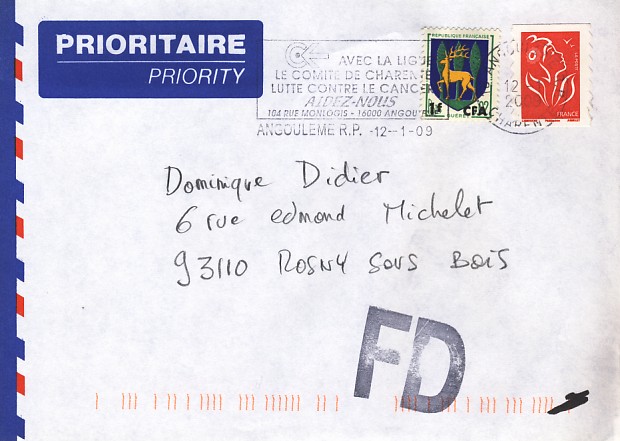 PRIORITAIRE
PRIORITY
AVEC LA LIGUE
LE COMITE DE CHARENTE
LUTTE CONTRE LE CANCER
AIDEZ-NOUS
104 RUE MONLOGIS - 16000 ANGOU
ANGOULEME R.P. -12--1-09
REPUBLIQUE FRANÇAISE
1F CFA
GUERET
12
CHARENTE
LA POSTE
FRANCE
Dominique Didier
6 rue edmond Michelet
93110 ROSNY SOUS BOIS
FD